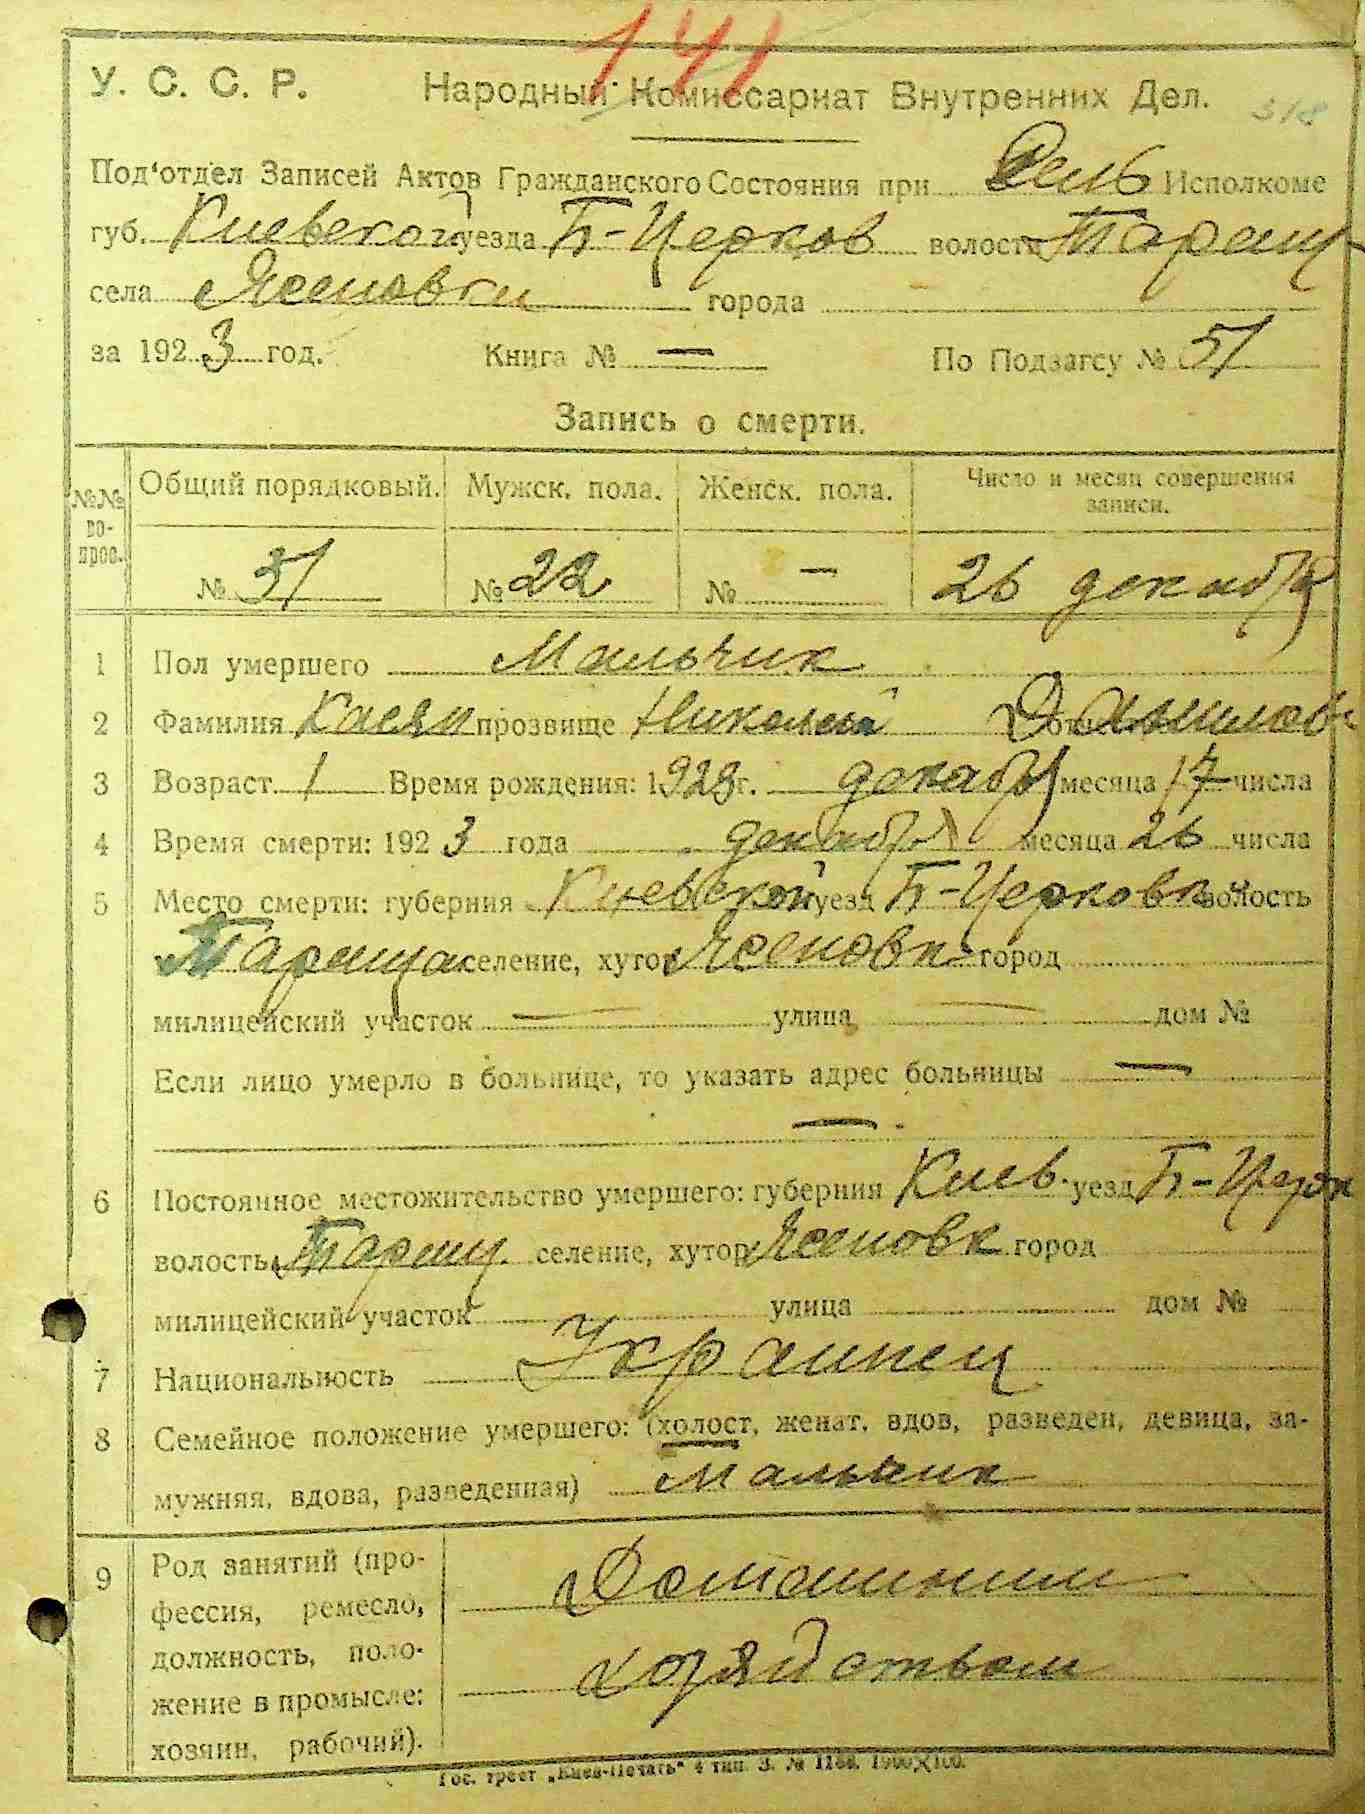 141
У. С. С. Р. Народный Комиссариат Внутренних Дел. 318
Под'отдел Записей Актов Гражданского Состояния при Сель Исполкоме
губ. Киевской уезда Б-Церков волости Таращ
села Ясеновки города
за 1923 год. Книга № — По Подзагсу № 51
Запись о смерти.
№№ вопрос. Общий порядковый. Мужск. пола. Женск. пола. Число и месяц совершения записи.
№ 51 № 22 № — 26 декабря
1 Пол умершего Мальчик
2 Фамилия Касян прозвище Николай Данилов
3 Возраст 1 Время рождения: 1923г. декабря месяца 17 числа
4 Время смерти: 1923 года декабря месяца 26 числа
5 Место смерти: губерния Киевской уезд Б-Церковк волость
Тараща селение, хутор Ясеновк город
милицейский участок — улица — дом №
Если лицо умерло в больнице, то указать адрес больницы —
—
6 Постоянное местожительство умершего: губерния Киев. уезд Б-Церк
волость Таращ. селение, хутор Ясеновк город
милицейский участок улица дом №
7 Национальность Украинец
8 Семейное положение умершего: (холост, женат, вдов, разведен, девица, за-
мужняя, вдова, разведенная) Мальчик
9 Род занятий (про-
фессия, ремесло, Домашним
должность, поло-
жение в промысле: хозяйством
хозяин, рабочий).
Гос. трест „Киев-Печать" 4 тип. З. № 1188. 1000×100.